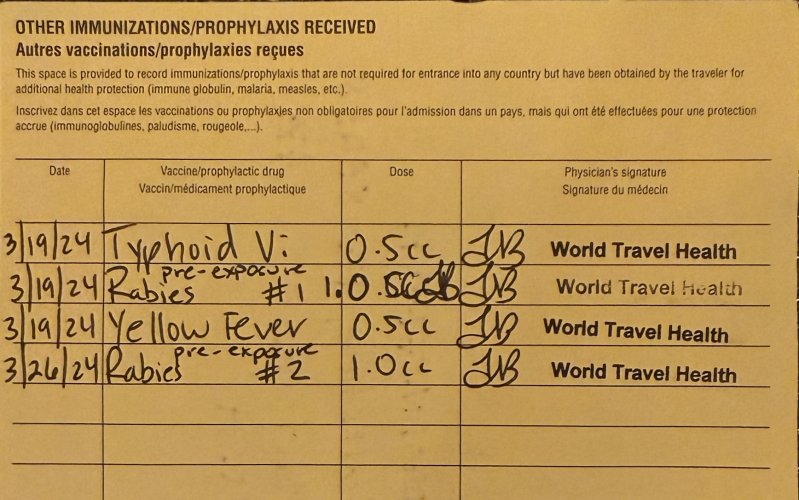 OTHER IMMUNIZATIONS/PROPHYLAXIS RECEIVED
Autres vaccinations/prophylaxies reçues
This space is provided to record immunizations/prophylaxis that are not required for entrance into any country but have been obtained by the traveler for
additional health protection (immune globulin, malaria, measles, etc.).
Inscrivez dans cet espace les vaccinations ou prophylaxies non obligatoires pour l'admission dans un pays, mais qui ont été effectuées pour une protection
accrue (immunoglobulines, paludisme, rougeole,...).
Date Vaccine/prophylactic drug Dose Physician's signature
Vaccin/médicament prophylactique Signature du médecin
3/19/24 Typhoid Vi 0.5cc JB World Travel Health
pre-exposure
3/19/24 Rabies #1 1.0 JB World Travel Health
3/19/24 Yellow Fever 0.5cc JB World Travel Health
pre-exposure
3/26/24 Rabies #2 1.0cc JB World Travel Health